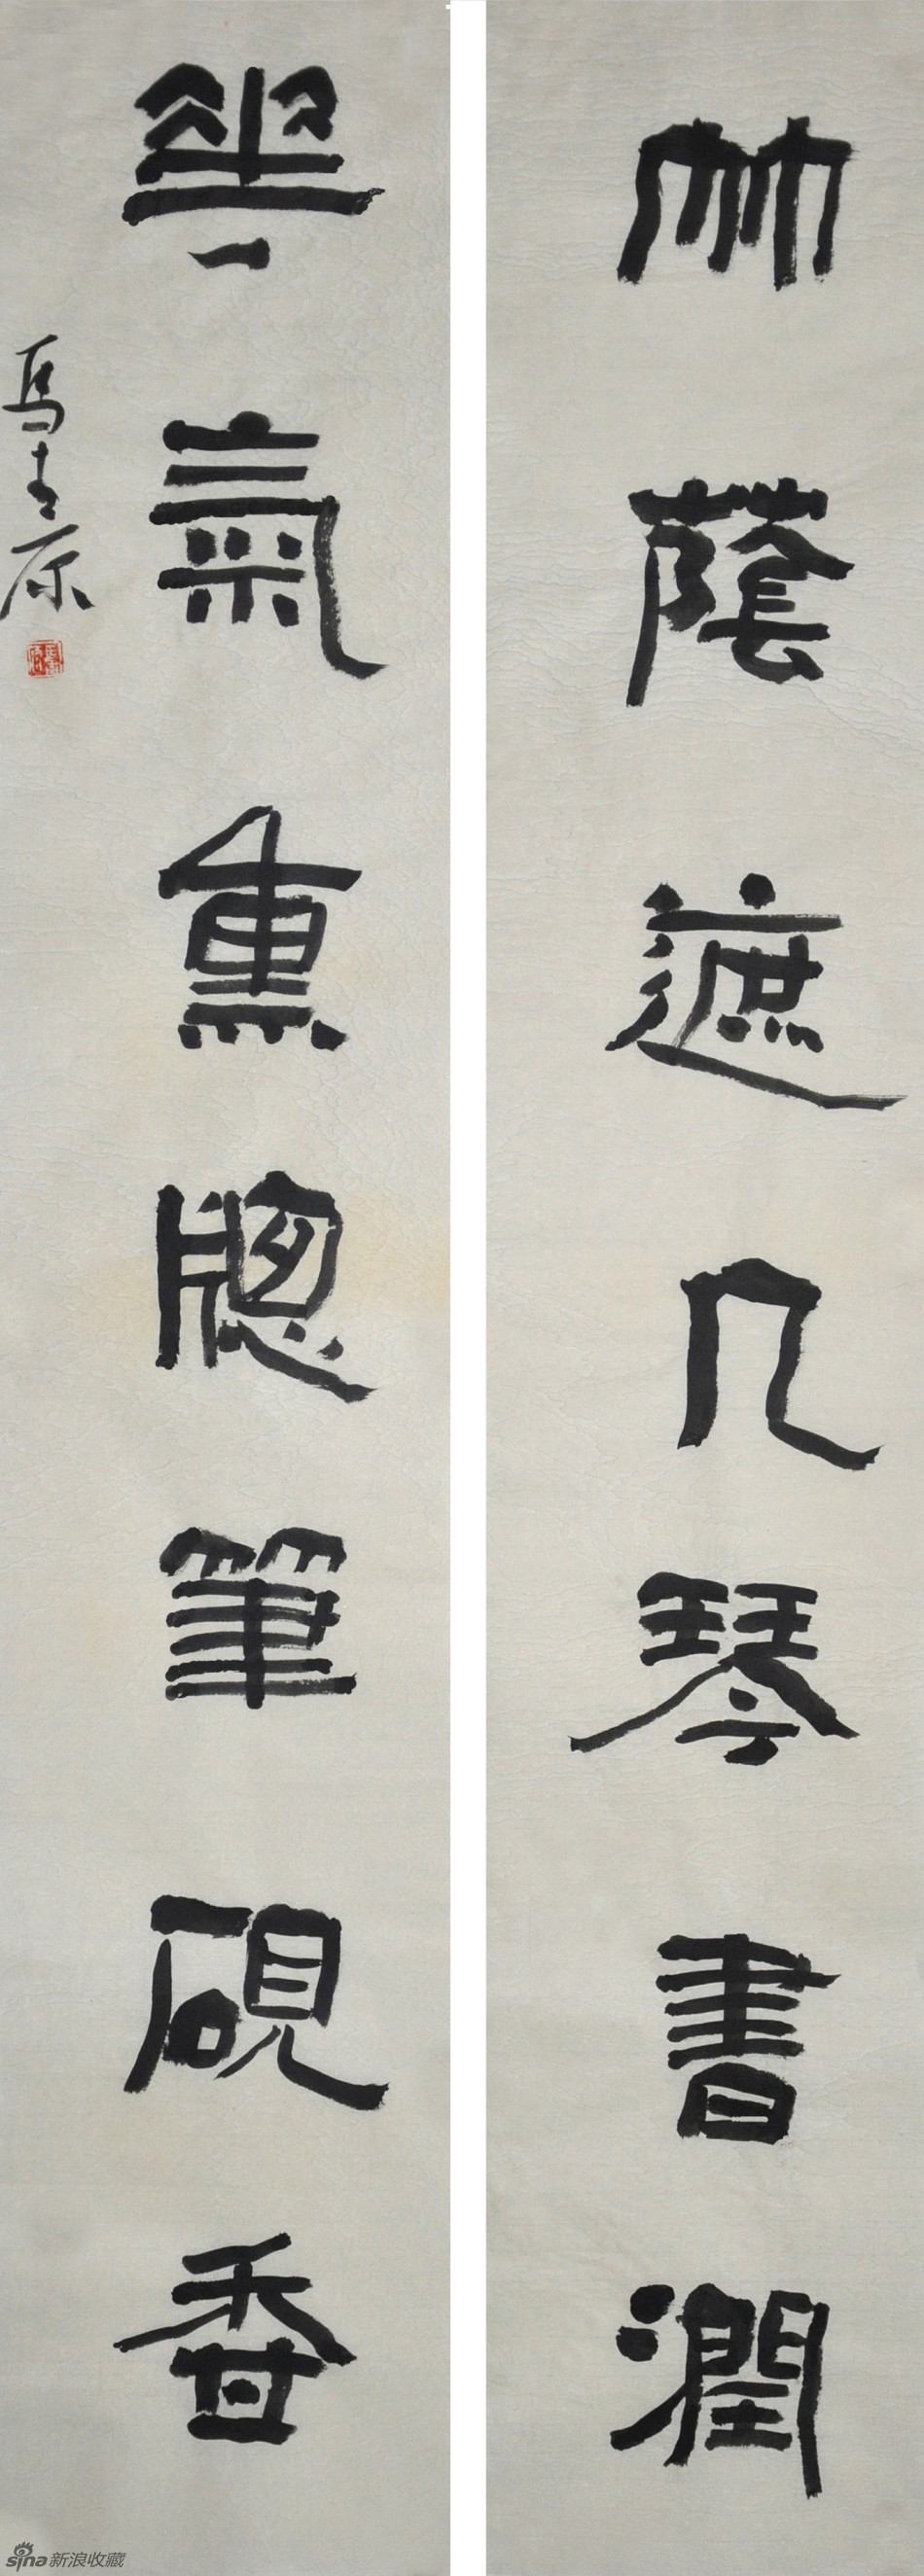 竹蔭遮几琴書潤
華氣熏牕筆硯香
馬士原
sina新浪收藏